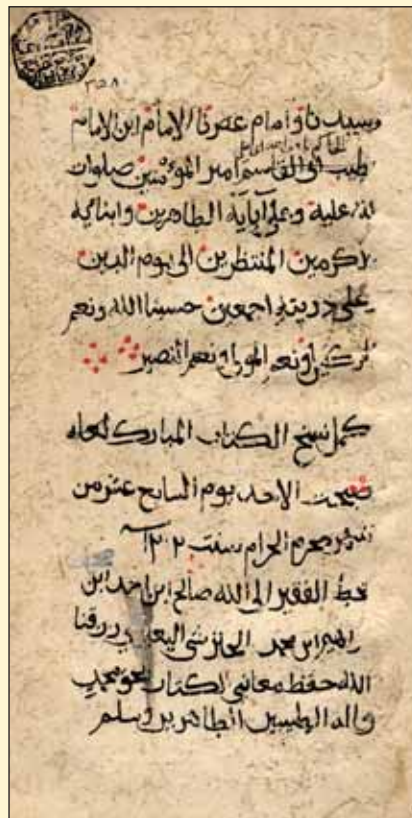 ٣٥٨
وسيدنا وامام عصرنا الامام ابن الامام
طيب ابي القاسم امير المؤمنين صلوات
الله عليه وعلى آبايه الطاهرين وابنائه
الاكرمين المنتظرين الى يوم الدين
وعلى ذريته اجمعين حسبنا الله ونعم
الوكيل ونعم المولى ونعم النصير
كمل نسخ الكتاب المبارك لعله
صبحت الاحد يوم السابع عشر من
شهر محرم الحرام سنت ١٢٠٢
بخط الفقير الى الله صالح ابن احمد ابن
ابن محمد رزقنا
الله حفظ معاني الكتاب بحق محمد
واله الطيبين الطاهرين وسلم